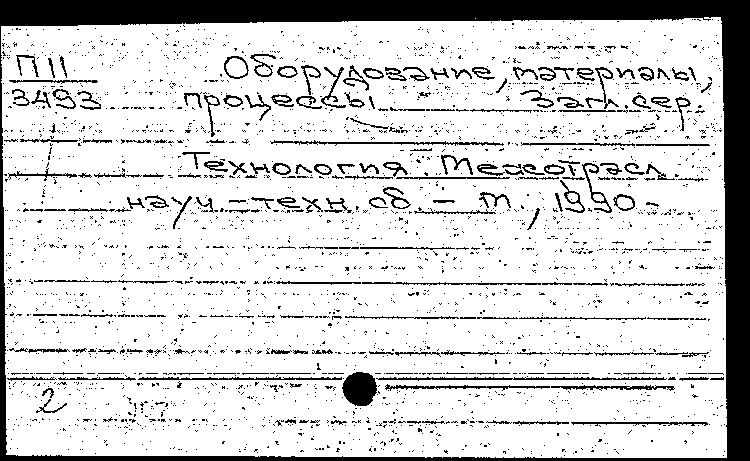 П11 Оборудование, материалы,
3493 процессы Загл. сер.
Технология. Межотрасл.
науч-техн. сб. - М., 1990-
2